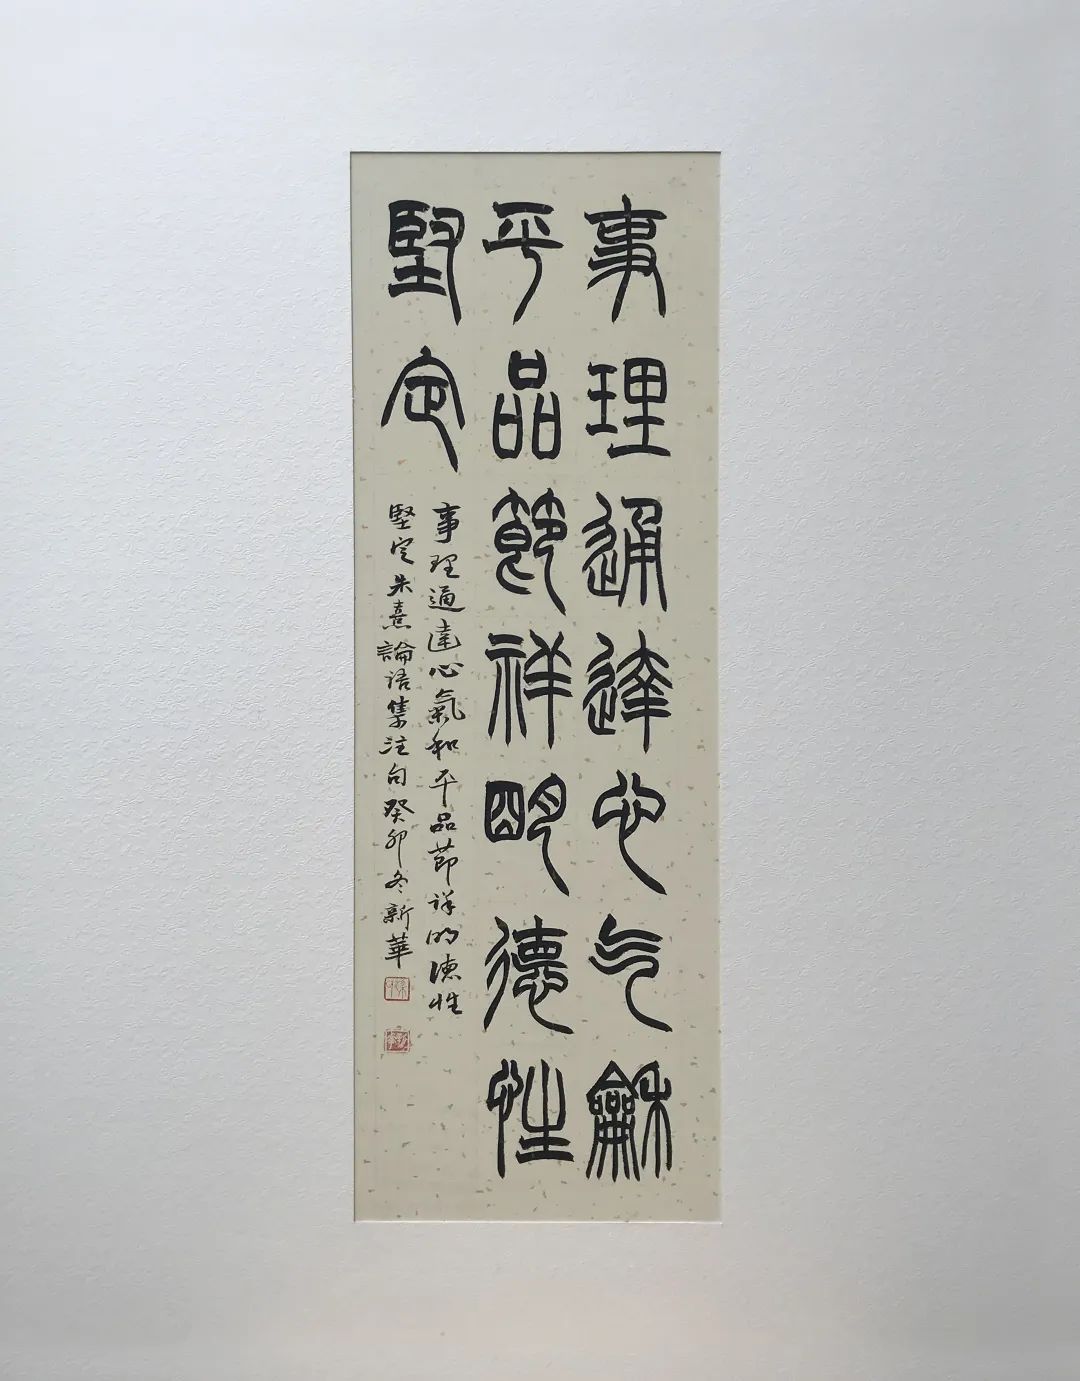 事理通達心气龢
平品節祥明德性
堅定
事理通達心氣和平品節祥明德性
堅定朱熹論語集注句癸卯冬新華